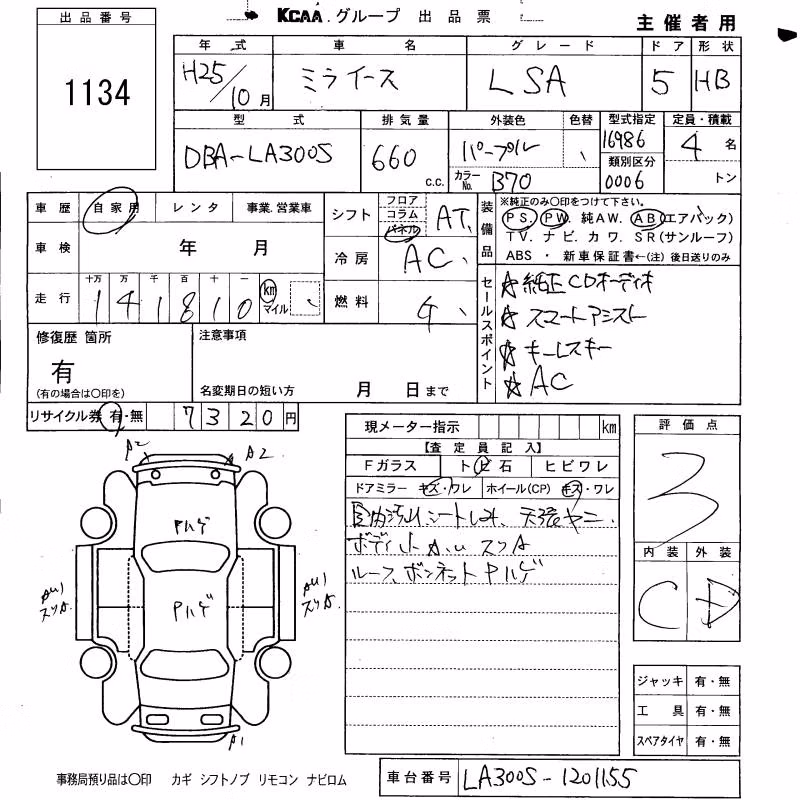 KCAA.グループ 出品票
主催者用
出品番号
1134
年式 車名 グレード ドア 形状
H25/10月 ミライース LSA 5 HB
型式 排気量 外装色 色替 型式指定 定員・積載
DBA-LA300S 660 c.c. パープル 16986 4名
カラーNo. B70 類別区分 0006 トン
車歴 自家用 レンタ 事業.営業車
シフト フロア コラム パネル AT
装備品 ※純正のみ〇印をつけて下さい。
PS. PW. 純AW. AB(エアバック)
TV. ナビ. カワ. SR(サンルーフ)
ABS ・ 新車保証書←(注)後日送りのみ
車検 年 月
冷房 AC
走行 十万 万 千 百 十 一
141810 km マイル
燃料
セールスポイント
☆純正CDオーディオ
☆スマートアシスト
☆キーレスキー
☆AC
修復歴 箇所
有
(有の場合は〇印を)
注意事項
名変期日の短い方 月 日まで
リサイクル券 有・無 7320円
現メーター指示 km
【査定員記入】
Fガラス トビ石 ヒビワレ
ドアミラー キズ・ワレ ホイール(CP) キズ・ワレ
シートしみ、天張ヤニ
ルーフ、ボンネットPハゲ
評価点
3
内装 外装
C D
A2 A2
Pハゲ
Pハゲ
A1
ジャッキ 有・無
工具 有・無
スペアタイヤ 有・無
事務局預り品は〇印 カギ シフトノブ リモコン ナビロム
車台番号 LA300S-1201155